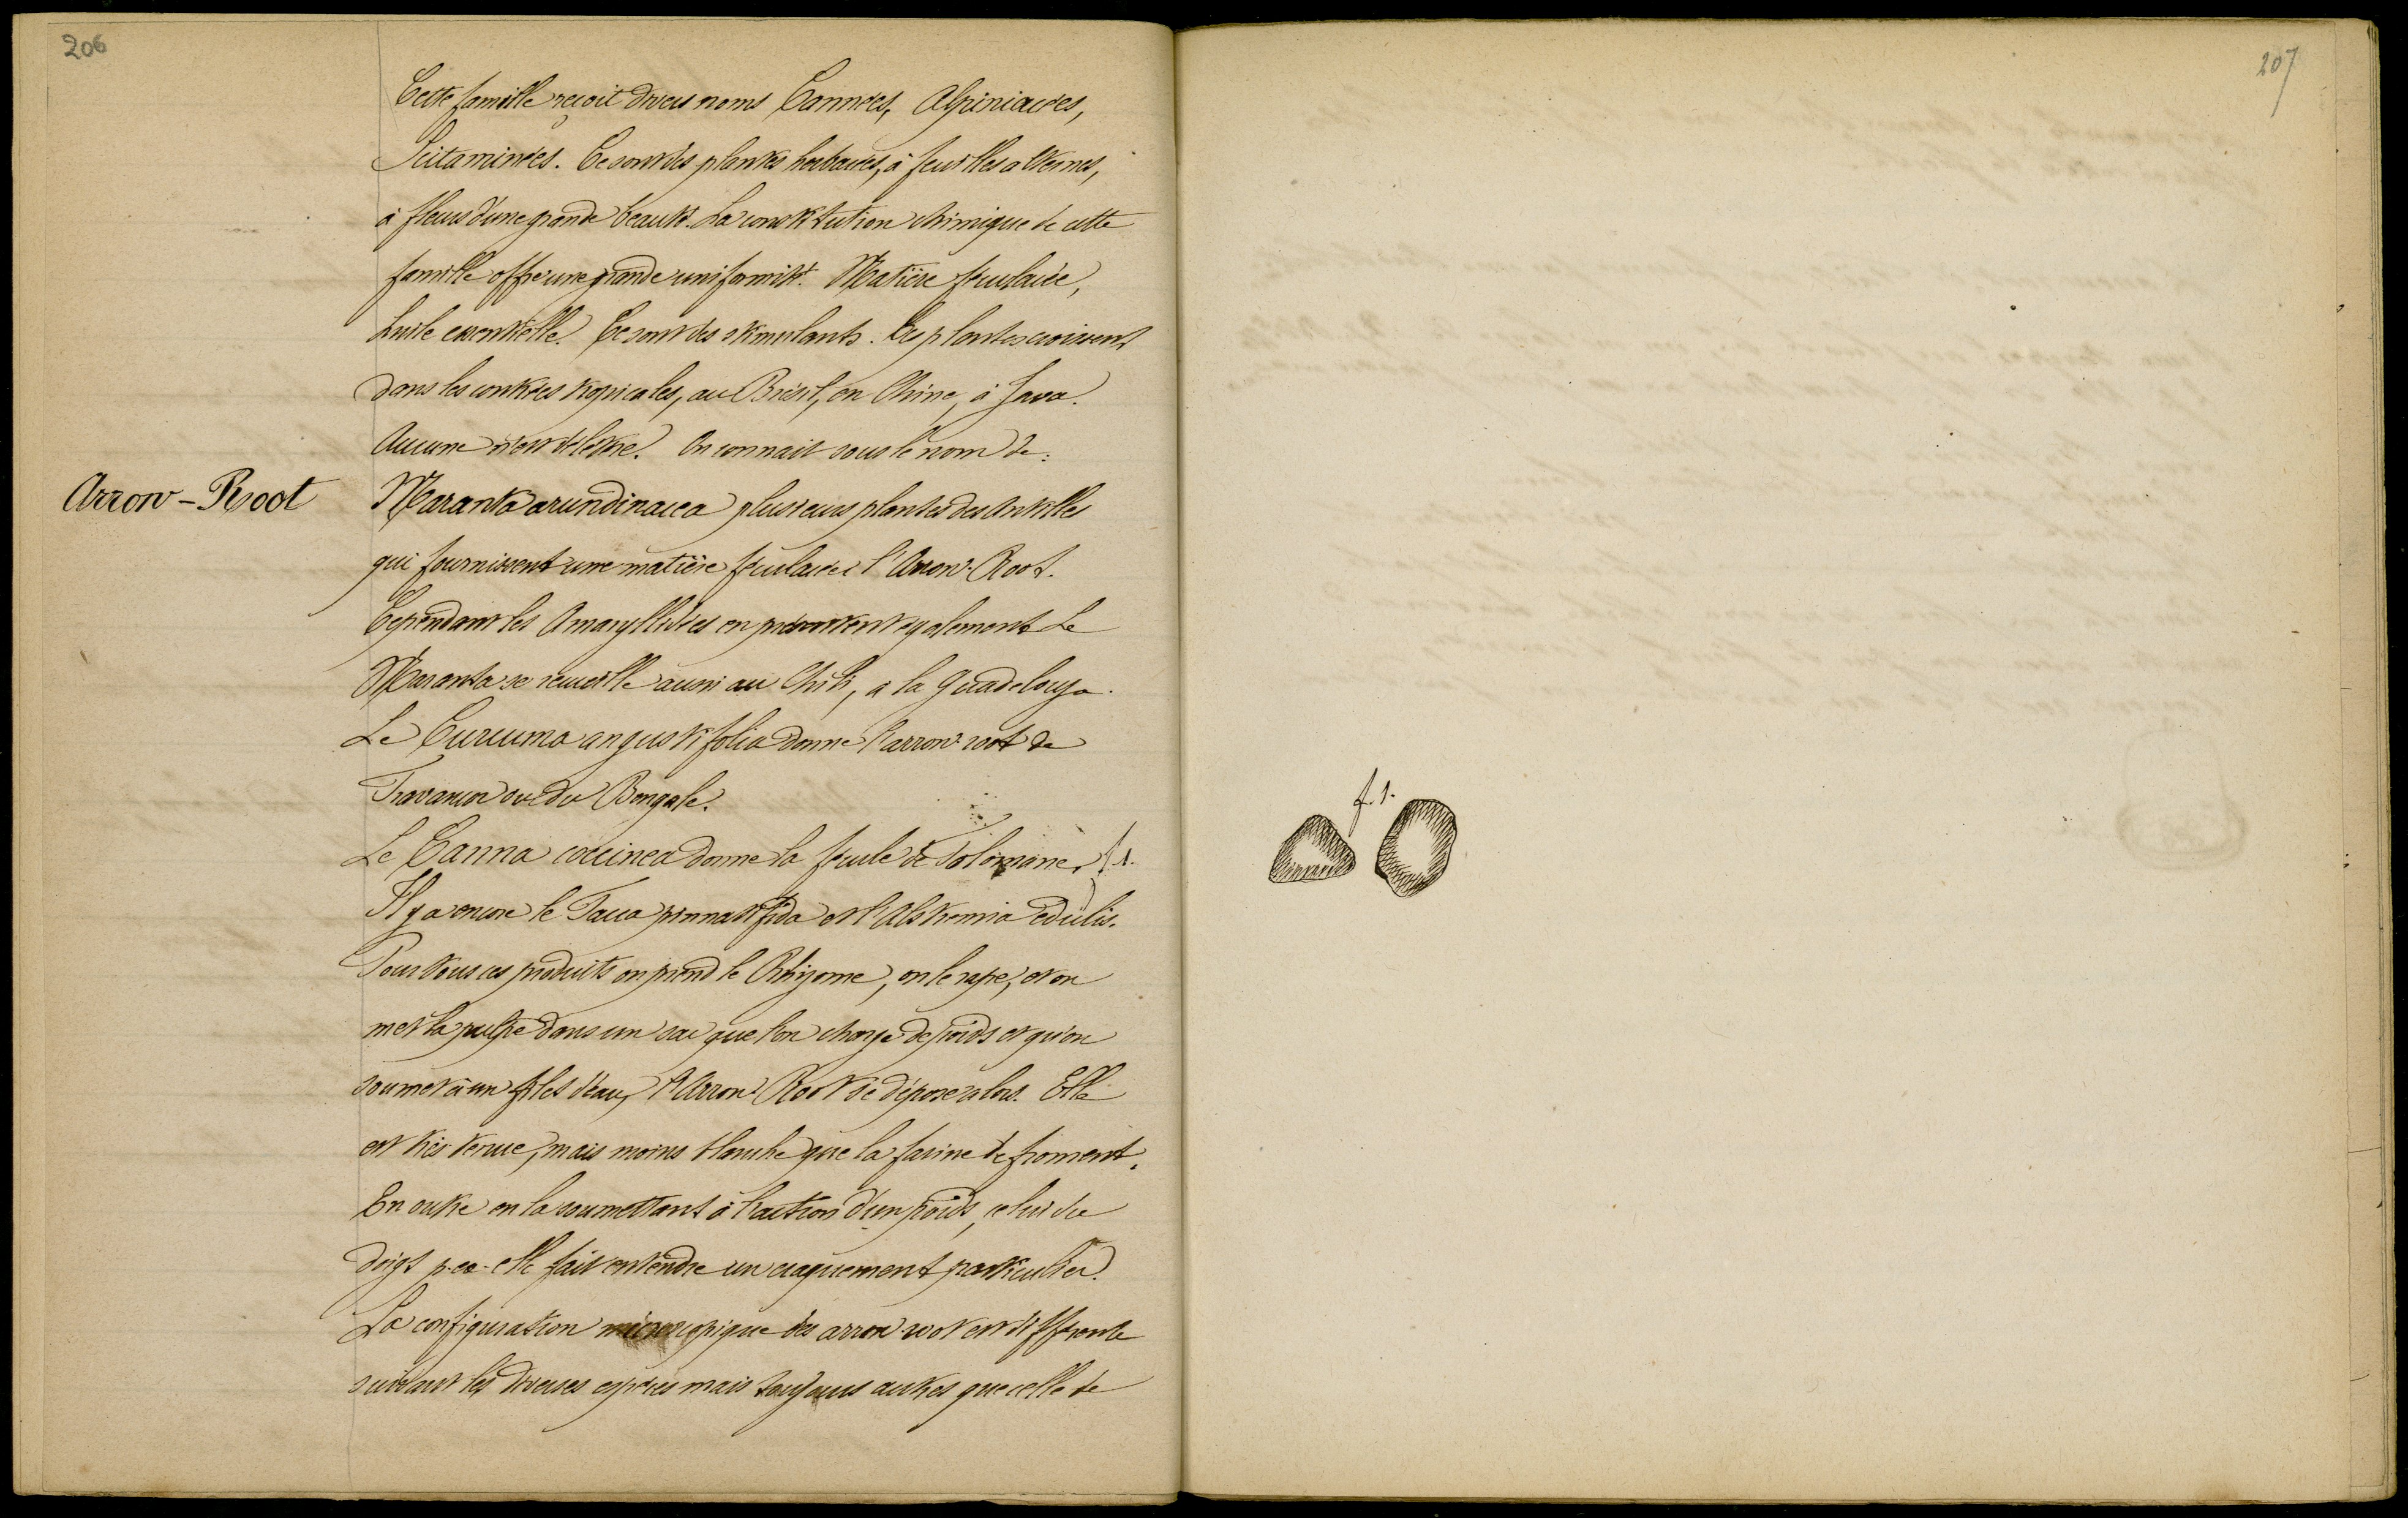 206
Cette famille reçoit divers noms Cannées, Alpiniacées,
Scitaminées. Ce sont des plantes herbacées, à feuilles alternes,
à fleurs d'une grande beauté. La constitution chimique de cette
famille offre une grande uniformité. Matière féculacée,
huile essentielle. Ce sont des stimulants. Ces plantes croissent
dans les contrées tropicales, au Brésil, en Chine, à Java.
Aucune n'est délétère. On connait sous le nom de:
Arrow-Root
Maranta arundinacea plusieurs plantes des Antilles
qui fournissent une matière féculacée l'Arrow-Root.
Cependant les Amaryllidées en présentent également Le
Maranta se recueille aussi au Chili, a la Guadeloupe.
Le Curcuma angustifolia donne l'arrow-root de
Travancor ou du Bengale.
Le Canna coccinea donne la fécule de Tolomane. f 1.
Il y a encore le Tacca pinnatifida et l'Alstremia edulis.
Pour tous ces produits on prend le Rhizome, on le rape, et on
met la pulpe dans un sac que l'on charge de poids et qu'on
soumet à un filet d'eau, l'Arrow Root se dépose alors. Elle
est très tenue, mais moins blanche que la farine de froment.
En outre en la soumettant à l'action d'un poids, celui du
doigt p. ex. elle fait entendre un craquement particulier.
La configuration microscopique des arrow root est différente
suivant les diverses espèces mais toujours autres que celle de
207
f. 1.